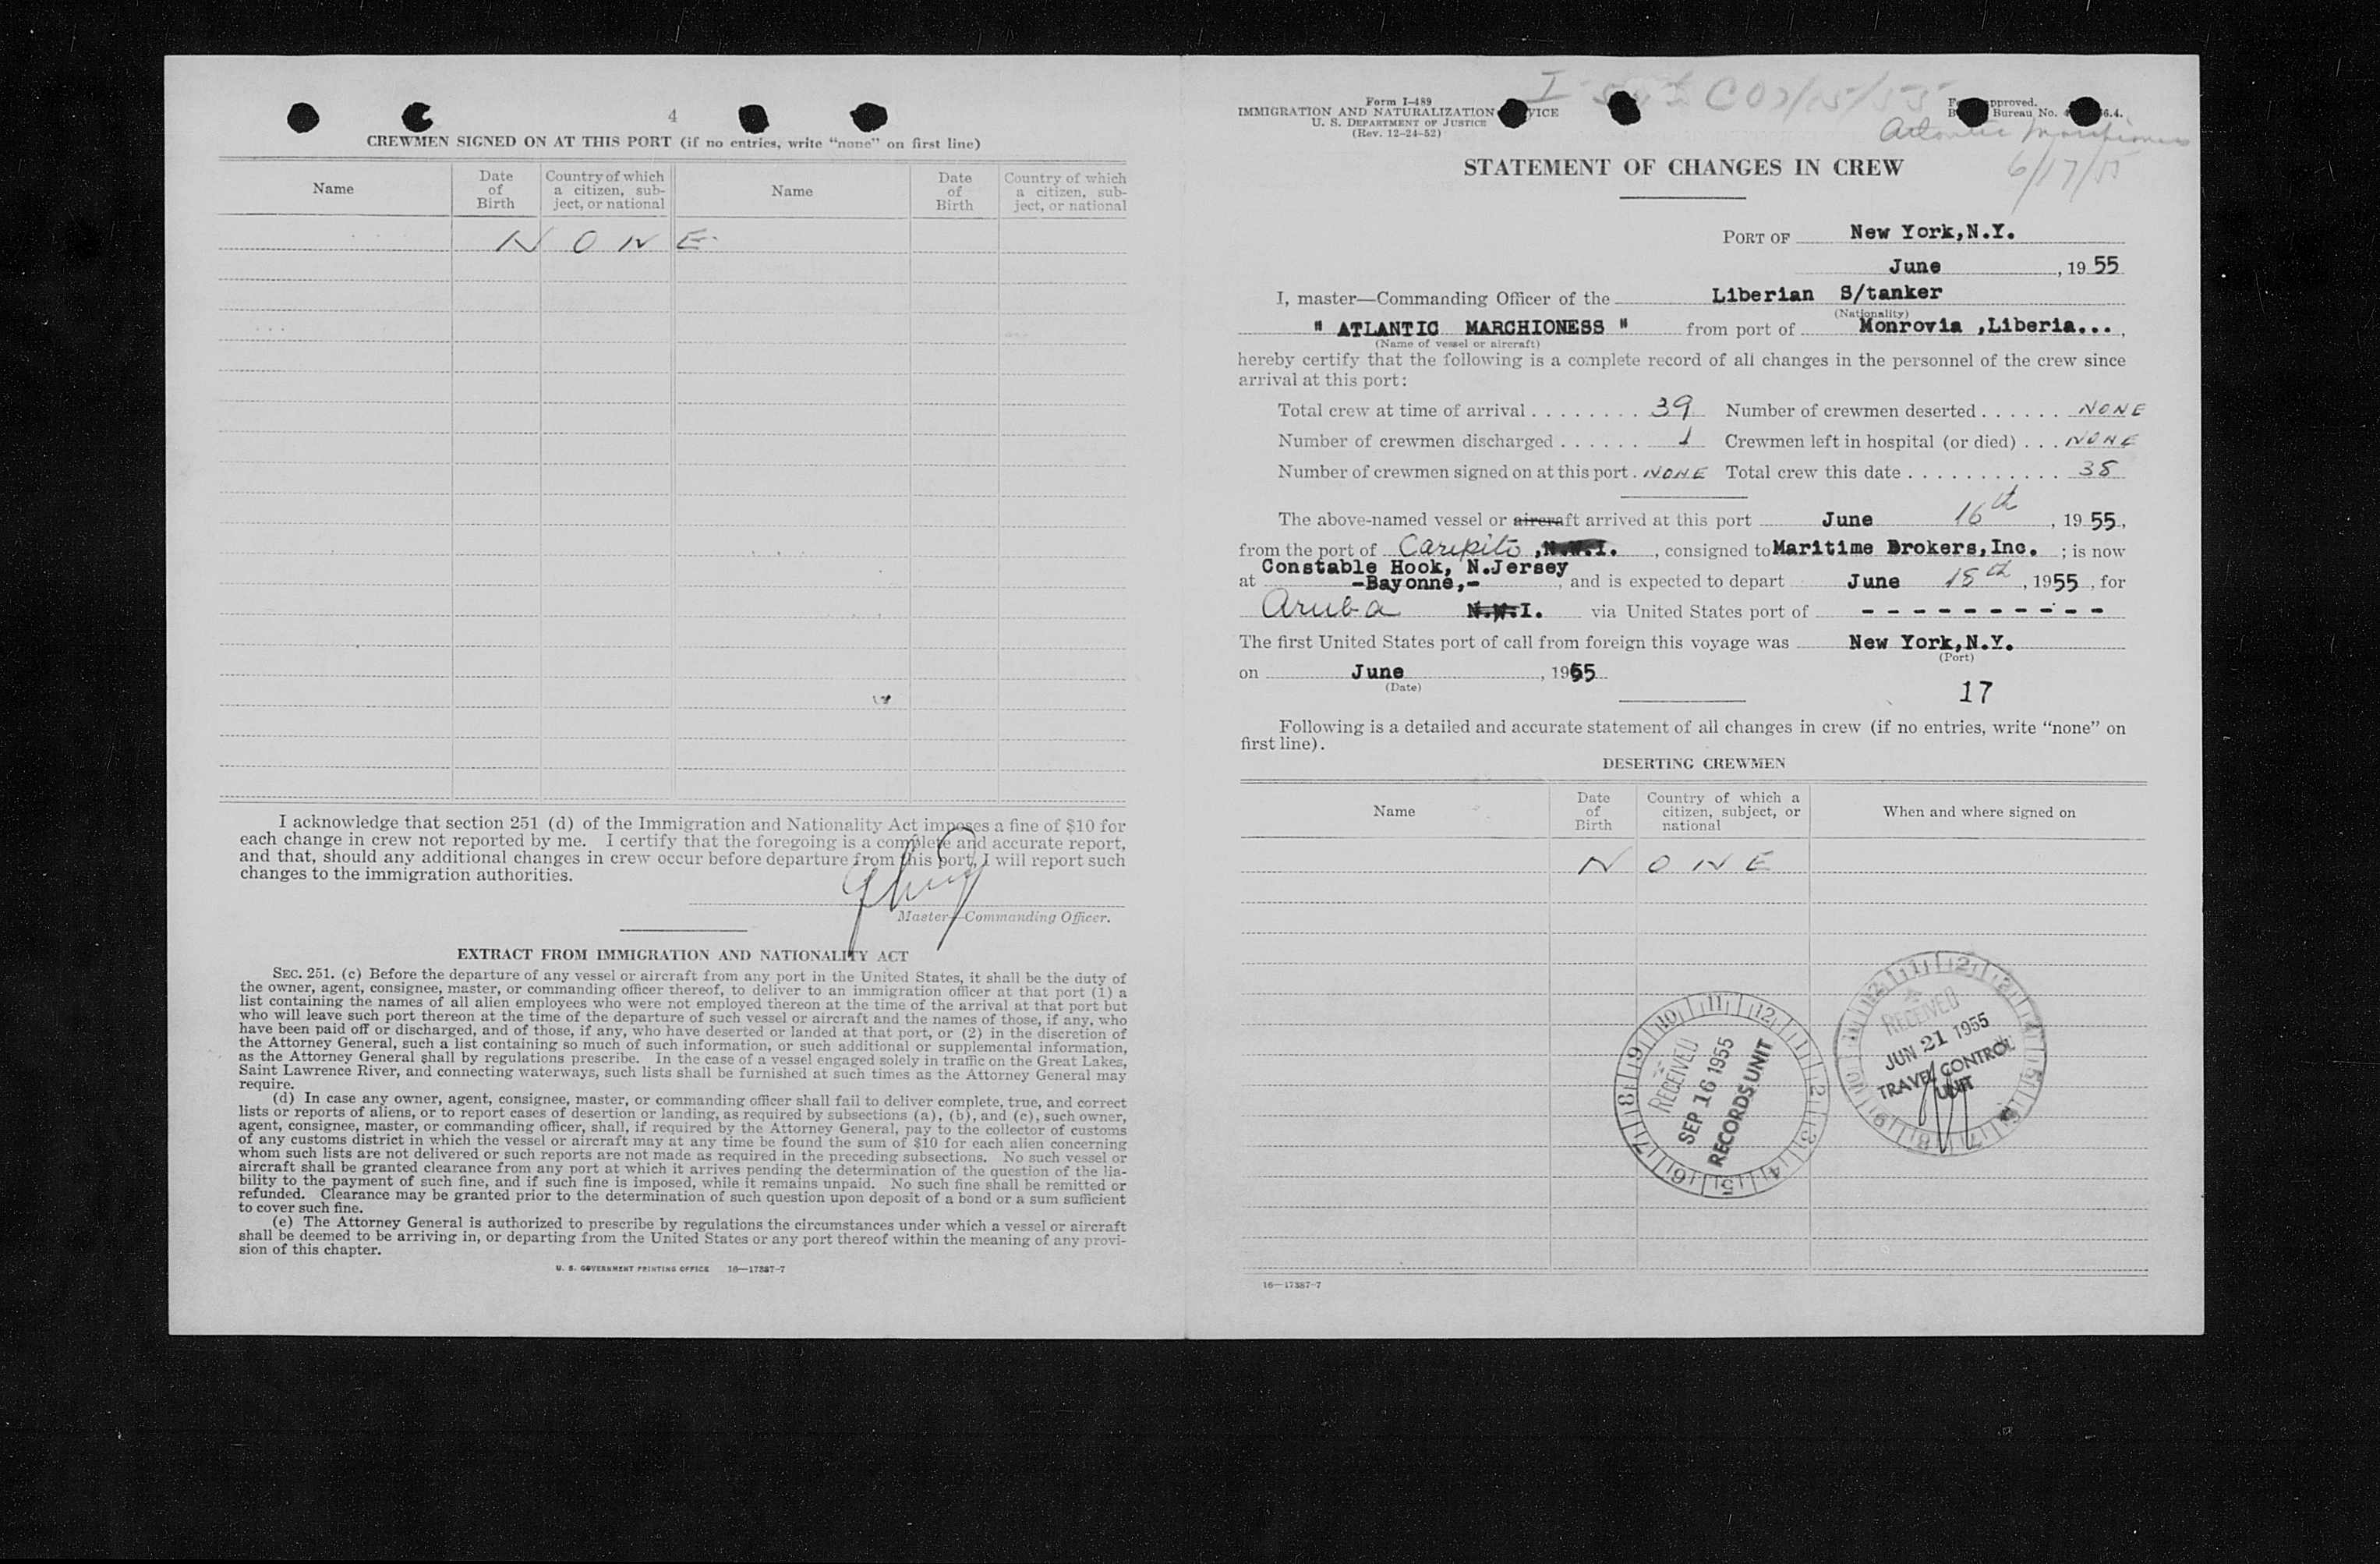 4
CREWMEN SIGNED ON AT THIS PORT (if no entries, write "none" on first line)
Name
Date of Birth
Country of which a citizen, subject, or national
Name
Date of Birth
Country of which a citizen, subject, or national
N O N E
I acknowledge that section 251 (d) of the Immigration and Nationality Act imposes a fine of $10 for
each change in crew not reported by me. I certify that the foregoing is a complete and accurate report,
and that, should any additional changes in crew occur before departure from this port, I will report such
changes to the immigration authorities.
Master—Commanding Officer.
EXTRACT FROM IMMIGRATION AND NATIONALITY ACT
SEC. 251. (c) Before the departure of any vessel or aircraft from any port in the United States, it shall be the duty of
the owner, agent, consignee, master, or commanding officer thereof, to deliver to an immigration officer at that port (1) a
list containing the names of all alien employees who were not employed thereon at the time of the arrival at that port but
who will leave such port thereon at the time of the departure of such vessel or aircraft and the names of those, if any, who
have been paid off or discharged, and of those, if any, who have deserted or landed at that port, or (2) in the discretion of
the Attorney General, such a list containing so much of such information, or such additional or supplemental information,
as the Attorney General shall by regulations prescribe. In the case of a vessel engaged solely in traffic on the Great Lakes,
Saint Lawrence River, and connecting waterways, such lists shall be furnished at such times as the Attorney General may
require.
(d) In case any owner, agent, consignee, master, or commanding officer shall fail to deliver complete, true, and correct
lists or reports of aliens, or to report cases of desertion or landing, as required by subsections (a), (b), and (c), such owner,
agent, consignee, master, or commanding officer, shall, if required by the Attorney General, pay to the collector of customs
of any customs district in which the vessel or aircraft may at any time be found the sum of $10 for each alien concerning
whom such lists are not delivered or such reports are not made as required in the preceding subsections. No such vessel or
aircraft shall be granted clearance from any port at which it arrives pending the determination of the question of the lia-
bility to the payment of such fine, and if such fine is imposed, while it remains unpaid. No such fine shall be remitted or
refunded. Clearance may be granted prior to the determination of such question upon deposit of a bond or a sum sufficient
to cover such fine.
(e) The Attorney General is authorized to prescribe by regulations the circumstances under which a vessel or aircraft
shall be deemed to be arriving in, or departing from the United States or any port thereof within the meaning of any provi-
sion of this chapter.
U. S. GOVERNMENT PRINTING OFFICE 16—17387-7
Form I-489
IMMIGRATION AND NATURALIZATION
U. S. DEPARTMENT OF JUSTICE
(Rev. 12-24-52)
Bureau No.
Atlantic Marchioness
6/17/55
STATEMENT OF CHANGES IN CREW
PORT OF New York,N.Y.
June , 1955
I, master—Commanding Officer of the Liberian S/tanker
(Nationality)
" ATLANTIC MARCHIONESS " from port of Monrovia ,Liberia... ,
(Name of vessel or aircraft)
hereby certify that the following is a complete record of all changes in the personnel of the crew since
arrival at this port:
Total crew at time of arrival . . . . . . . . 39 Number of crewmen deserted . . . . . . NONE
Number of crewmen discharged . . . . . . 1 Crewmen left in hospital (or died) . . . NONE
Number of crewmen signed on at this port . NONE Total crew this date . . . . . . . . . . . 38
The above-named vessel or aircraft arrived at this port June 16th , 1955,
from the port of Caripito ,N.W.I. , consigned to Maritime Brokers,Inc. ; is now
Constable Hook, N.Jersey
at -Bayonne,- , and is expected to depart June 18th , 1955 , for
Aruba N.W.I. via United States port of - - - - - - - - - -
The first United States port of call from foreign this voyage was New York,N.Y.
(Port)
on June , 1955
(Date)
17
Following is a detailed and accurate statement of all changes in crew (if no entries, write "none" on
first line).
DESERTING CREWMEN
Name
Date of Birth
Country of which a citizen, subject, or national
When and where signed on
N O N E
RECEIVED
SEP 16 1955
RECORDS UNIT
RECEIVED
JUN 21 1955
TRAVEL CONTROL
UNIT
16—17387-7